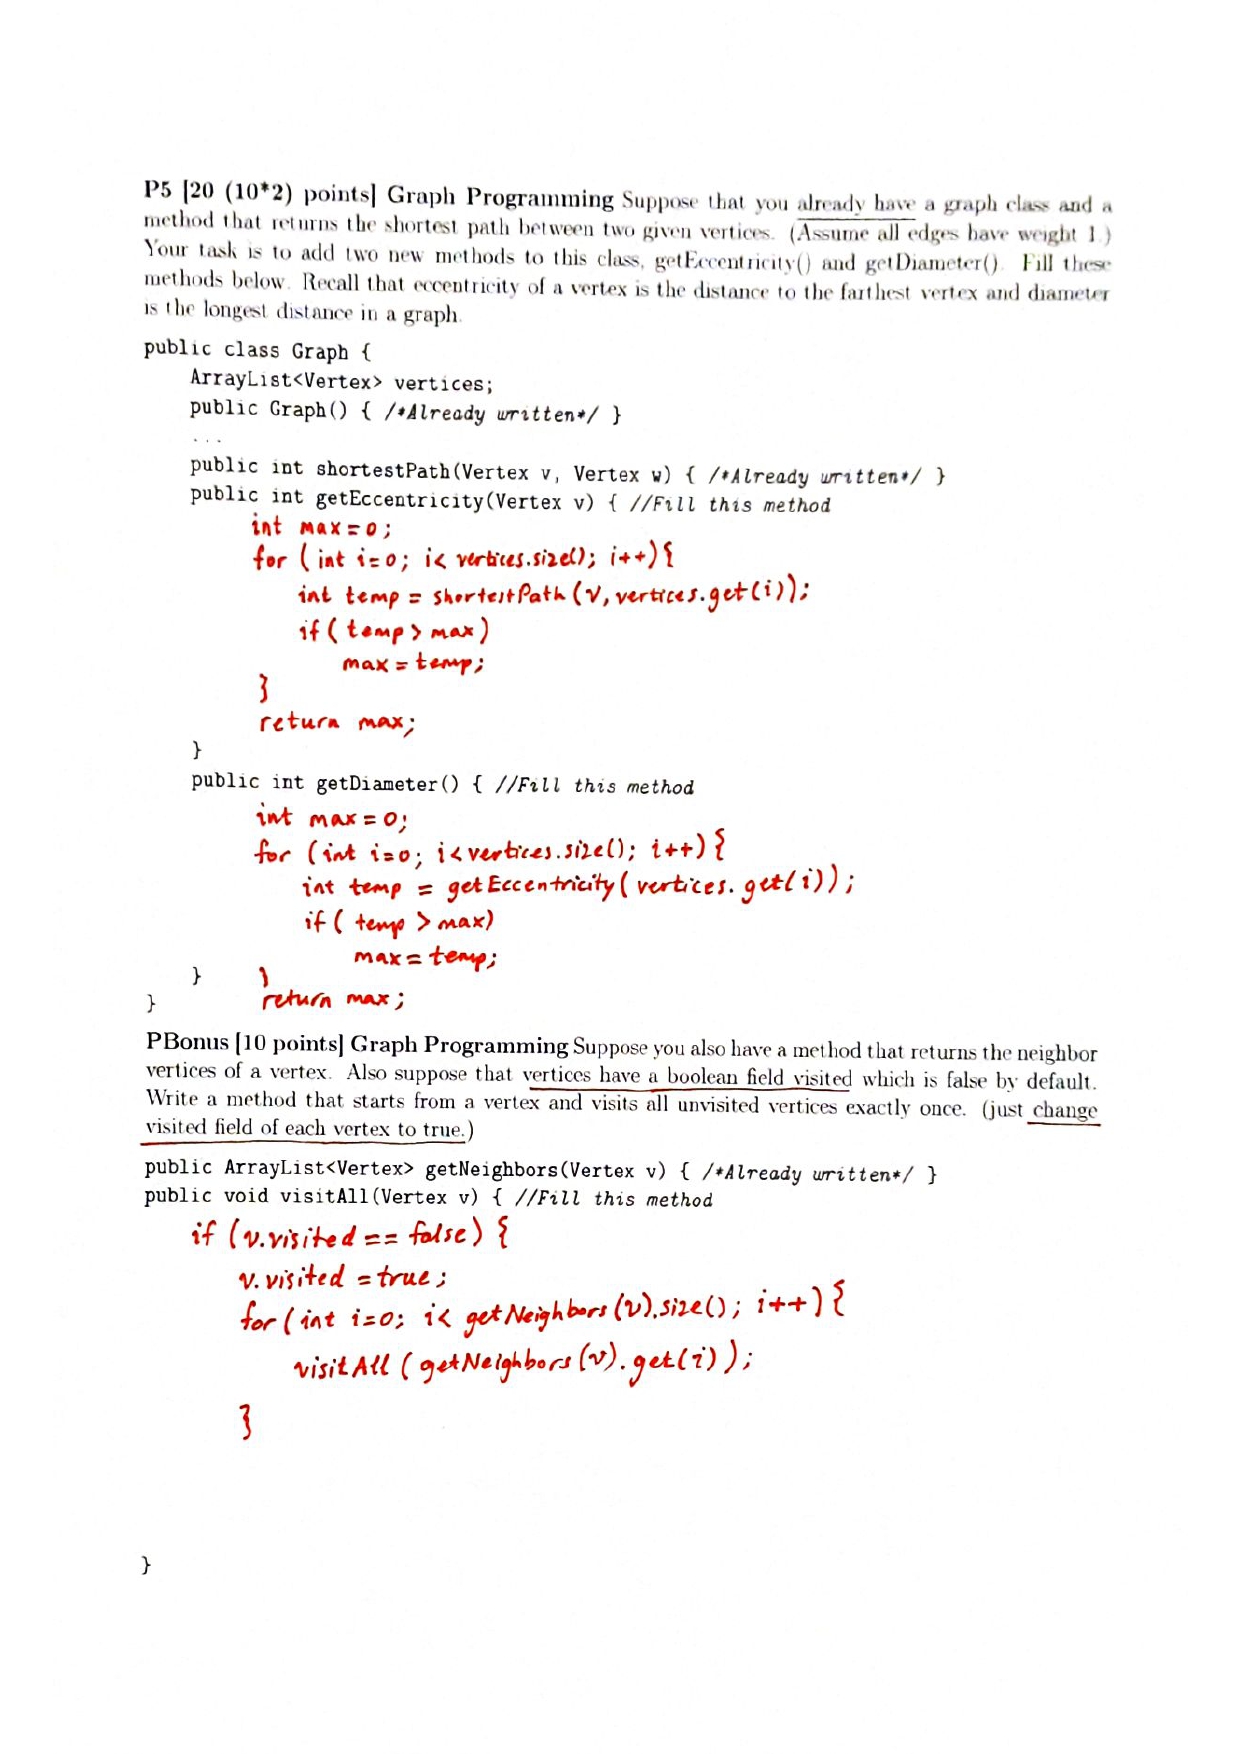 P5 [20 (10*2) points] Graph Programming Suppose that you already have a graph class and a
method that returns the shortest path between two given vertices. (Assume all edges have weight 1.)
Your task is to add two new methods to this class, getEccentricity() and getDiameter(). Fill these
methods below. Recall that eccentricity of a vertex is the distance to the farthest vertex and diameter
is the longest distance in a graph.
public class Graph {
ArrayList<Vertex> vertices;
public Graph() { /*Already written*/ }
...
public int shortestPath(Vertex v, Vertex w) { /*Already written*/ }
public int getEccentricity(Vertex v) { //Fill this method
int max=0;
for (int i=0; i< vertices.size(); i++){
int temp = shortestPath(v,vertices.get(i));
if( temp> max)
max = temp;
}
return max;
}
public int getDiameter() { //Fill this method
int max = 0;
for (int i=0; i<vertices.size(); i++){
int temp = getEccentricity( vertices. get(i));
if( temp > max)
max = temp;
} }
} return max;
PBonus [10 points] Graph Programming Suppose you also have a method that returns the neighbor
vertices of a vertex. Also suppose that vertices have a boolean field visited which is false by default.
Write a method that starts from a vertex and visits all unvisited vertices exactly once. (just change
visited field of each vertex to true.)
public ArrayList<Vertex> getNeighbors(Vertex v) { /*Already written*/ }
public void visitAll(Vertex v) { //Fill this method
if (v.visited == false) {
v.visited = true;
for(int i=0; i< getNeighbors(v).size(); i++){
visitAll (getNeighbors(v).get(i));
}
}